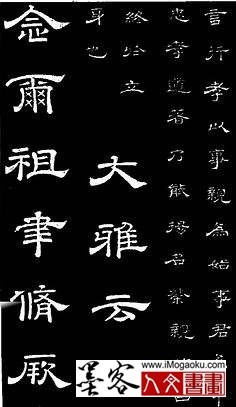 言行孝以事親為始事君
忠孝道著乃能揚名榮親
終於立
身也
大雅云
念爾祖聿脩厥
墨客
www.iMogaoku.com